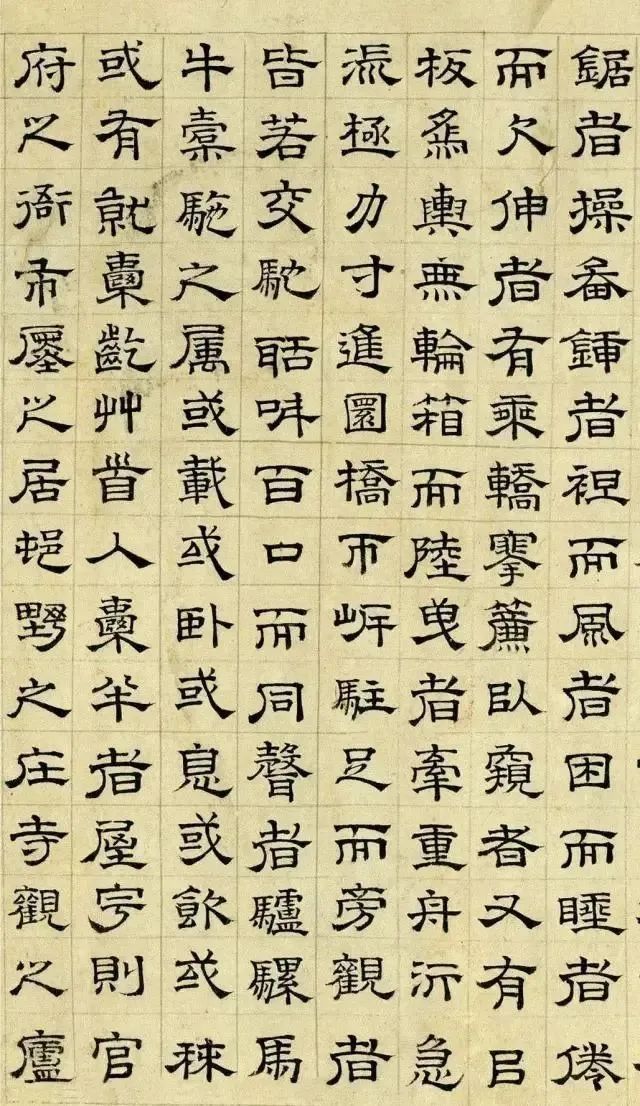 鋸者操畚鍤者袒而風者困而睡者倦
而欠伸者有乘轎搴簾㠯窺者又有㠯
板爲輿無輪箱而陸曳者牽重舟泝急
流極力寸進圜橋匝岸駐足而旁觀者
皆若交馳聒呌百口而同聲者驢騾馬
牛橐駞之属或載或臥或息或飲或秣
或有就囊齕艸首入囊半者屋宇則官
府之衙市廛之居邨野之庄寺觀之廬